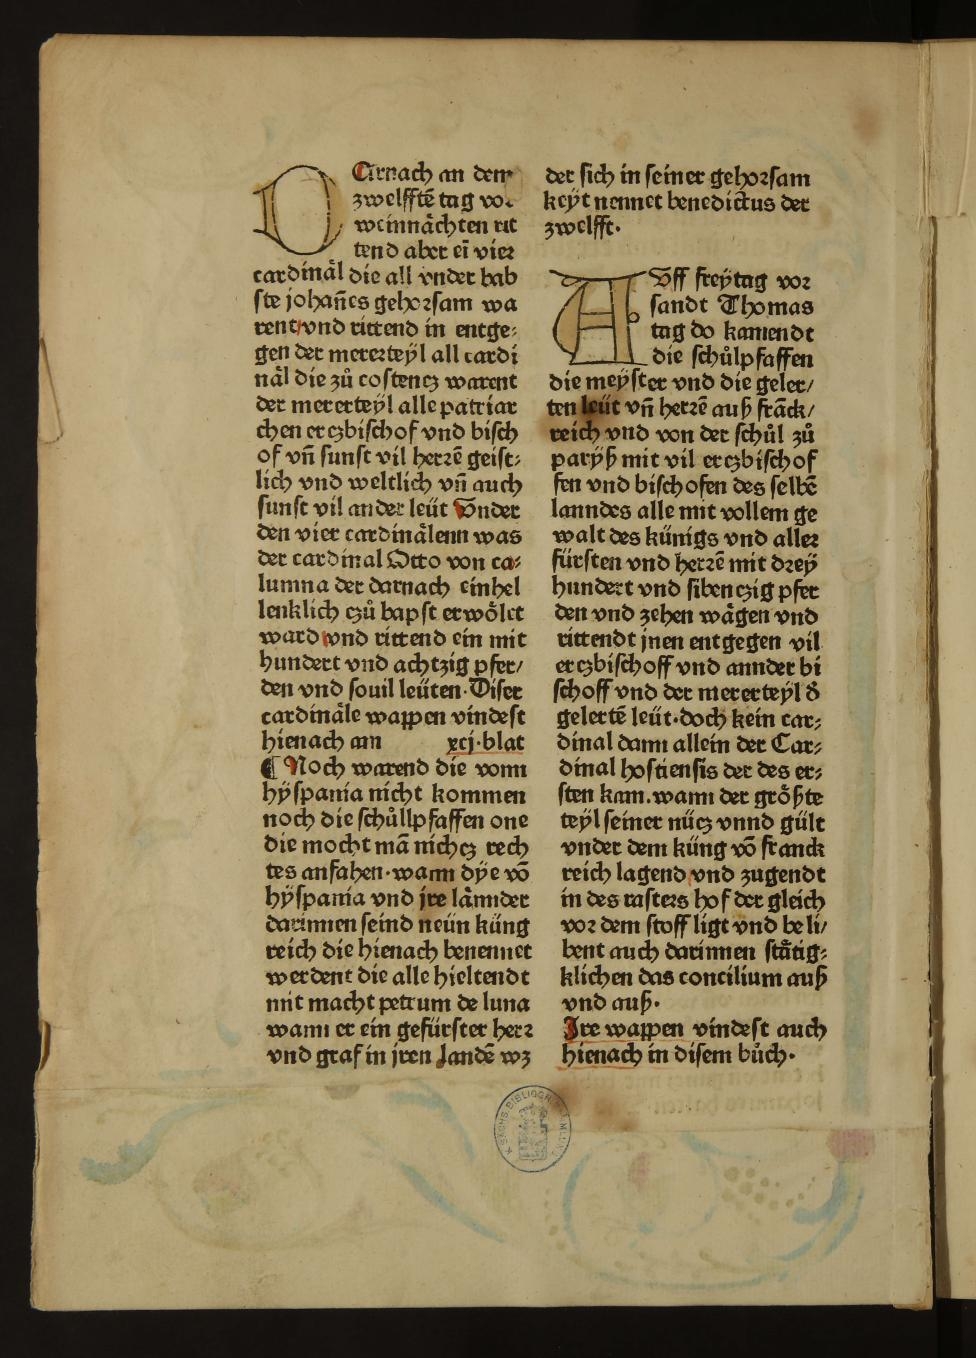 DArnach an dem
zwelfftē tag vor
weinnächten rit
tend aber eī vier
cardinäl die all vnder bab
ste johañes gehorsam wa
rent vnd rittend in entge⸗
gen der mererteÿl all cardi
näl die zů costencz warent
der mererteÿl alle patriar
chen erczbischof vnd bisch
of vñ sunst vil herrē geist⸗
lich vnd weltlich vñ auch
sunst vil ander leüt Vnder
den vier cardinälenn was
der cardinal Otto von ca⸗
lumna der darnach einhel
lenklich czů bapst erwölet
ward vnd rittend ein mit
hundert vnd achtzig pfer/
den vnd souil leüten·Diser
cardinäle wappen vindest
hienach am xcj·blat
¶ Noch warend die vonn
hÿspania nicht kommen
noch die schůllpfaffen one
die mocht mā nichcz rech
tes anfahen·wann dÿe vō
hÿspania vnd jre lännder
darinnen seind neün küng
reich die hienach benennet
werdent die alle hieltendt
mit macht petrum de luna
wann er ein gefürster herr
vnd graf in jren landē wz
der sich in seiner gehorsam
keÿt nennet benedictus der
zwelfft·
AVff freÿtag vor
sandt Thomas
tag do kamendt
die schůlpfaffen
die meÿster vnd die geler/
ten leüt vñ herrē auß frāck/
reich vnd von der schůl zů
parÿß mit vil erczbischof
fen vnd bischofen des selbē
lanndes alle mit vollem ge
walt des künigs vnd aller
fürsten vnd herrē mit dreÿ
hundert vnd sibenczig pfer
den vnd zehen wägen vnd
rittendt jnen entgegen vil
erczbischoff vnd annder bi
schoff vnd der mererteÿl d̕
gelertē leüt·doch kein car⸗
dinal dann allein der Car⸗
dinal hostiensis der des er⸗
sten kam.wann der größte
teÿl seiner nücz vnnd gült
vnder dem küng vō franck
reich lagend vnd zugendt
in des rasters hof der gleich
vor dem stoff ligt vnd beli/
bent auch darinnen stätig⸗
klichen das concilium auß
vnd auß·
Jre wappen vindest auch
hienach in disem bůch·